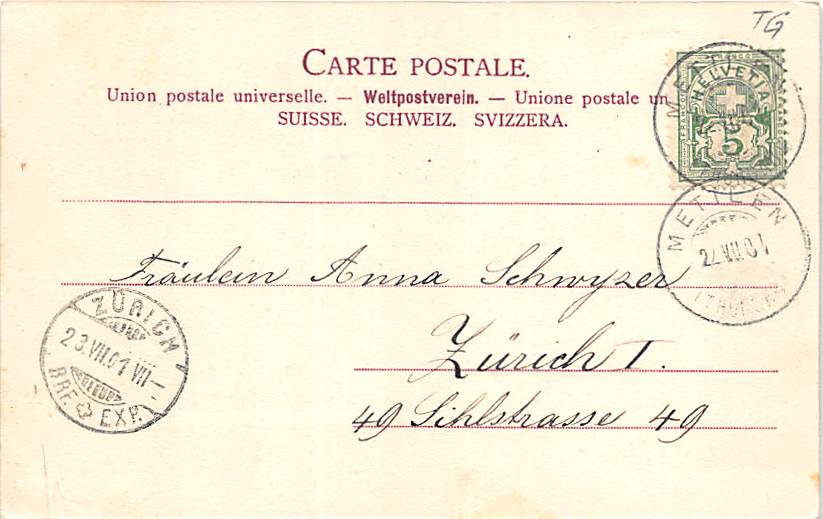 TG
CARTE POSTALE.
Union postale universelle. — Weltpostverein. — Unione postale un
SUISSE. SCHWEIZ. SVIZZERA.
FRANCO
HELVETIA
5
METTLEN
22.VII.01
(THURGAU)
Fräulein Anna Schwyzer
Zürich I.
49 Sihlstrasse 49
ZÜRICH
23.VII.01 VII—
BRF. EXP.